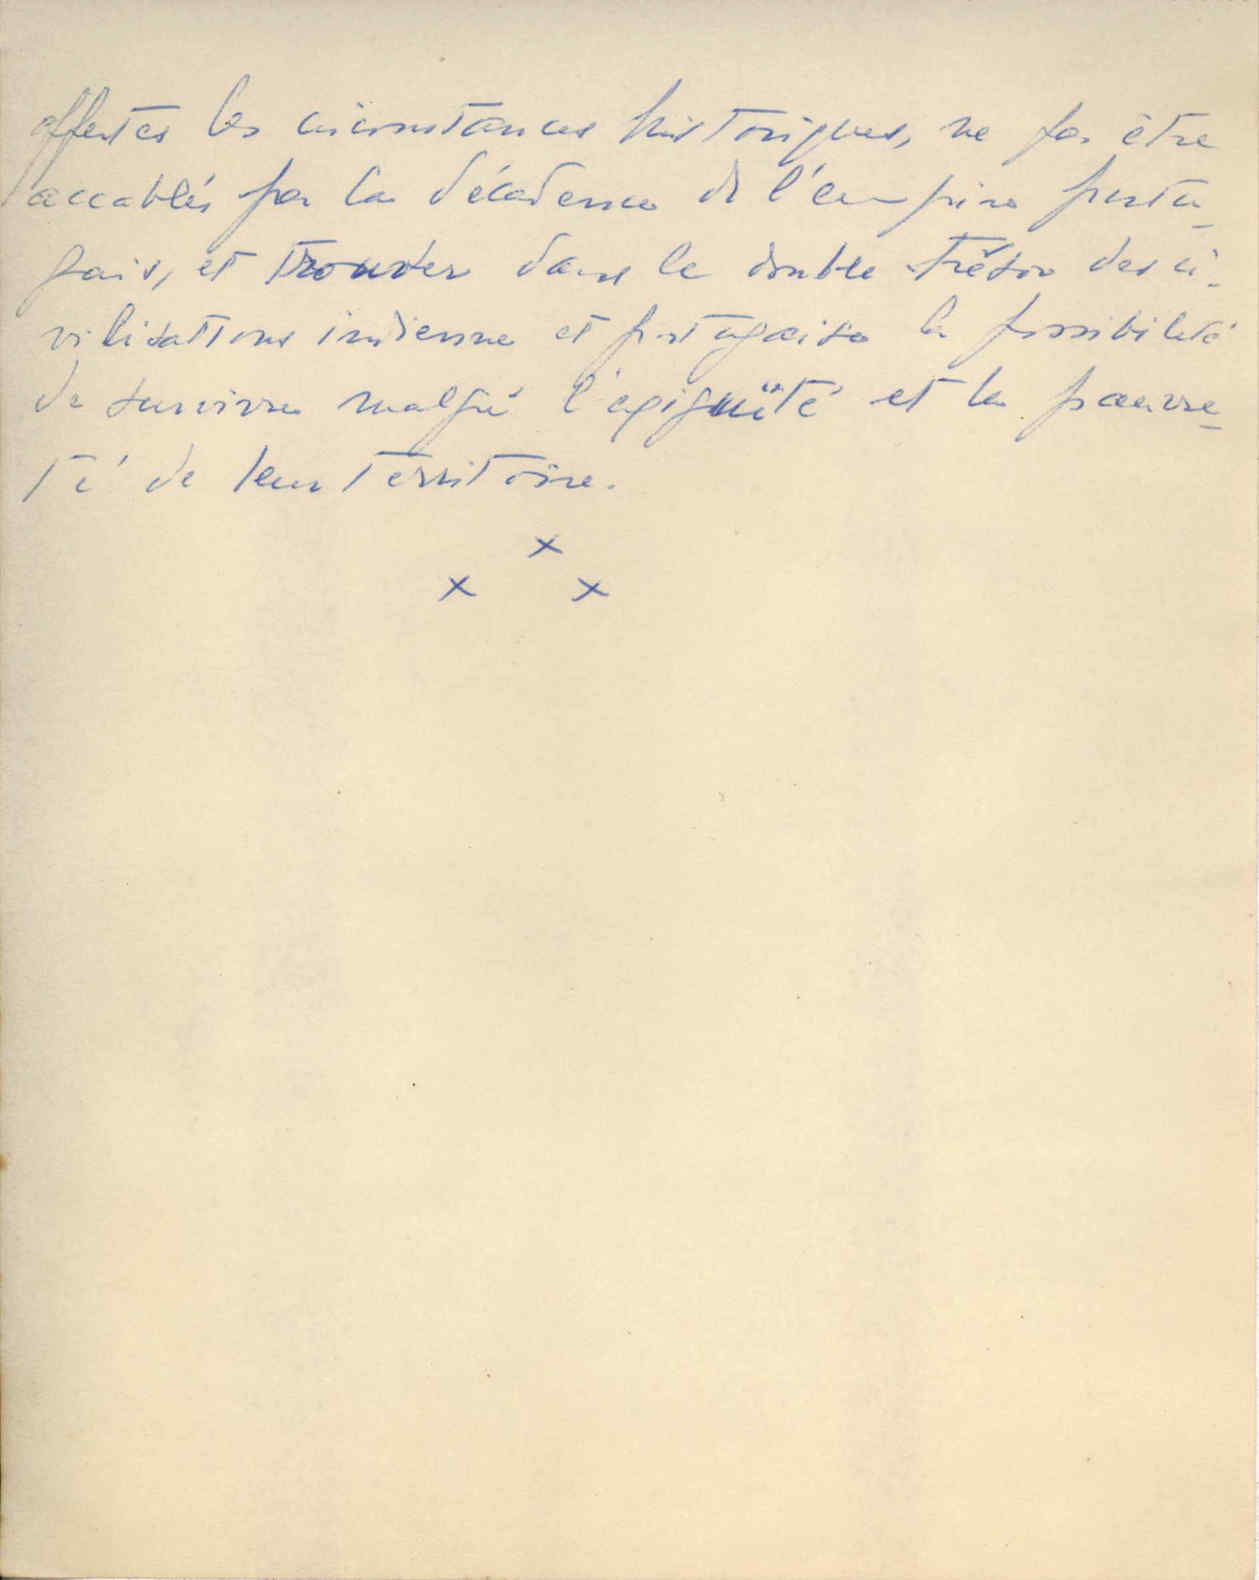 offertes les circonstances historiques, ne pas être
accablés par la décadence de l'empire portu-
gais, et trouver dans le double trésor des ci-
vilisations indienne et portugaise la possibilité
de survivre malgré l'exiguïté et la pauvre-
té de leur territoire.
x
x x